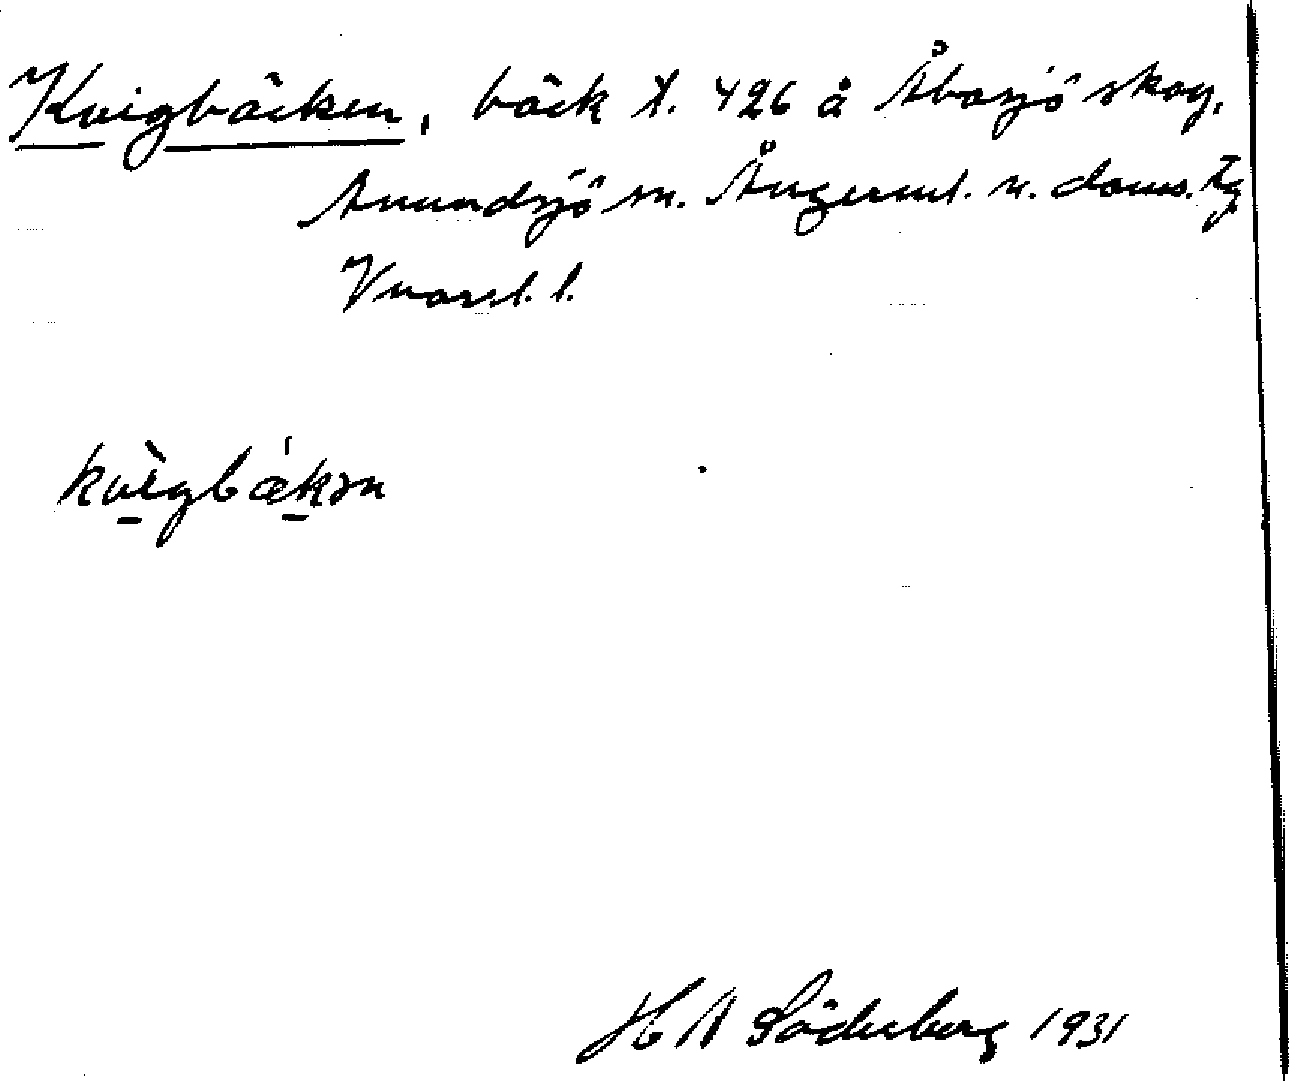 Kvigbäcken, bäck X. 426 å Åbosjö skog,
Anundsjö sn. Ångerml. n. doms. tg
Vnorrl. l.
kvìgbǽkən
H A Söderberg 1931